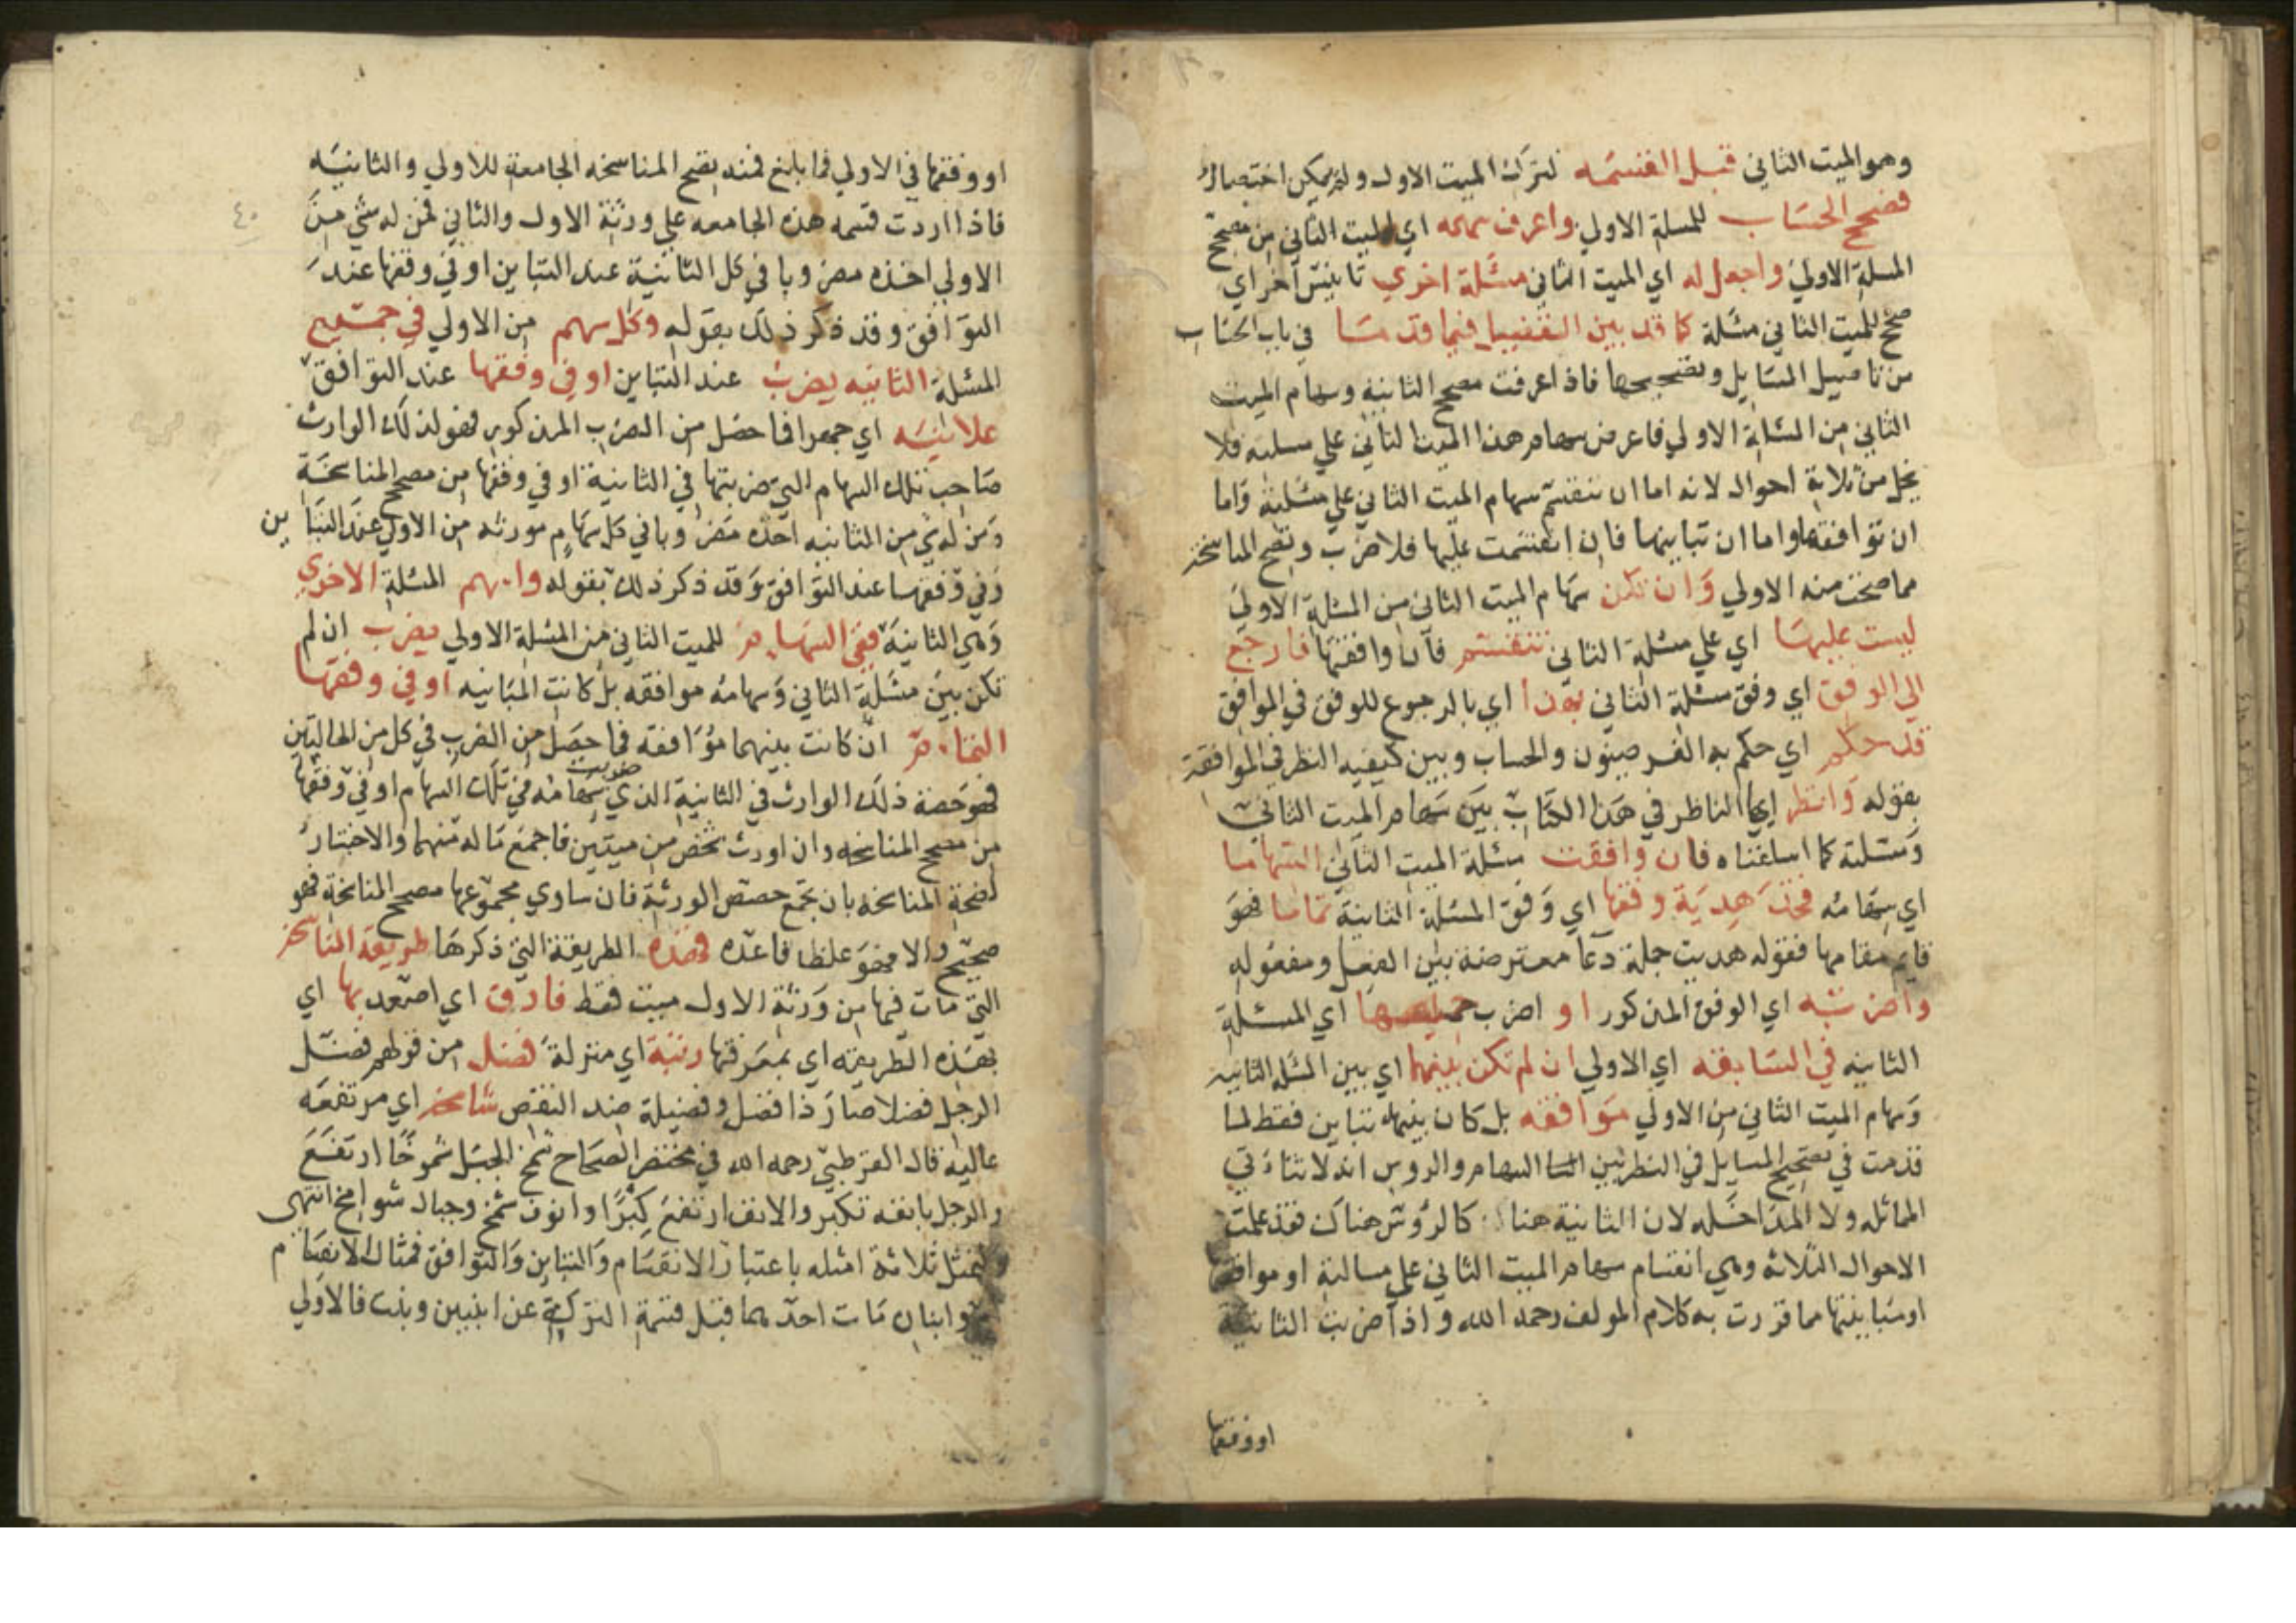 وهو الميت الثاني قبل القسمه لتركة الميت الاول ولم يمكن اختصار
فصحح الحساب للمسلة الاولي واعرف سهمه اي الميت الثاني من مصحح
المسلة الاولي واجعل له اي الميت الثاني مسئلة اخري تانيث آخر اي
صحح للميت الثاني مسئلة كما قد بين التفصيل فيما قدما في باب الحساب
من تاصيل المسايل وتصحيحها فاذا عرفت مصحح الثانية وسهام الميت
الثاني من المسئلة الاولي فاعرض سهام هذا الميت الثاني علي مسلته فلا
يخل من ثلاثة احوال لانه اما ان تنقسم سهام الميت الثاني علي مسئلته واما
ان توافقها واما ان تباينها فان انقسمت عليها فلا ضرب وتصح المناسخة
مما صحت منه الاولي وان تكن سهام الميت الثاني من المسئلة الاولي
ليست عليها اي علي مسئلة الثاني تنقسم فان وافقتها فارجع
الي الوفق اي وفق مسئلة الثاني بهذا اي بالرجوع للوفق في الموافق
قد حكم اي حكم به الفرضيون والحساب وبين كيفيه النظر في الموافقة
بقوله وانظر ايها الناظر في هذا الكتاب بين سهام الميت الثاني
ومسئلته كما اسلفناه فان وافقت مسئلة الميت الثاني السهاما
اي سهامه فخذ هديت وفقها اي وفق المسئلة الثانية تماما فهو
قايم مقامها فقوله هديت جملة دعا معترضة بين الفعل ومفعوله
واضربه اي الوفق المذكور او اضرب جميعها اي المسئلة
الثانيه في السابقه اي الاولي ان لم تكن بينهما اي بين المسئلة الثانية
وسهام الميت الثاني من الاولي موافقه بل كان بينهما تباين فقط لما
قدمت في تصحيح المسايل في النظر بين السهام والروس انه لا تتاتي
المماثله ولا المداخله لان الثانية هنا كالرؤس هناك فقد علمت
الاحوال الثلاثه وهي انقسام سهام الميت الثاني علي مسالته او موافقتها
او مباينتها مما قررت به كلام المولف رحمه الله واذا ضربت الثانية
او وفقها
او وفقها في الاولي فما بلغ فمنه تصح المناسخه الجامعة للاولي والثانيه
فاذا اردت قسمه هذه الجامعه علي ورثة الاول والثاني فمن له شي من
٤٠
الاولي اخذه مضروبا في كل الثانية عند التباين او في وفقها عند
التوافق وقد ذكر ذلك بقوله وكل سهم من الاولي في جميع
المسئلة الثانيه يضرب عند التباين او في وفقها عند التوافق
علانيه اي جهرا فما حصل من الضرب المذكور فهو لذلك الوارث
صاحب تلك السهام التي ضربتها في الثانية او في وفقها من مصحح المناسخة
ومن له شي من الثانيه اخذه مضروبا في كل سهام مورثه من الاولي عند التباين
وفي وفقها عند التوافق وقد ذكر ذلك بقوله واسهم المسئلة الاخري
وهي الثانية ففي السهام للميت الثاني من المسئلة الاولي يضرب ان لم
تكن بين مسئلة الثاني وسهامه موافقه بل كانت المباينه او في وفقها
ان كانت بينهما موافقه فما حصل من الضرب في كل من الحالتين
فهو حصة ذلك الوارث في الثانية الذي ضربت سهامه في تلك السهام او في وفقها
من مصحح المناسخه وان اورث شخص من ميتين فاجمع ما له منهما والاختبار
لصحة المناسخه بان تجمع حصص الورثة فان ساوي مجموعها مصحح المناسخة فهو
صحيح والا فهو غلط فاعده فهذه الطريقة التي ذكرها طريقة المناسخه
التي مات فيها من ورثة الاول ميت فقط فارق اي اصعد بها اي
بهذه الطريقه اي بمعرفتها رتبة اي منزلة فضل من قولهم فضل
الرجل فضلا صار ذا فضل وفضيلة ضد النقص شامخه اي مرتفعه
عالية قال القرطبي رحمه الله في مختصر الصحاح شمخ الجبل شموخا ارتفع
والرجل بانفه تكبر والانف ارتفع كبرا وانوف شمخ وجبال شوامخ انتهى
ولنمثل ثلاثة امثله باعتبار الانقسام والتباين والتوافق فمثال الانقسام
وابنان مات احدهما قبل قسمة التركة عن ابنين وبنت فالاولي